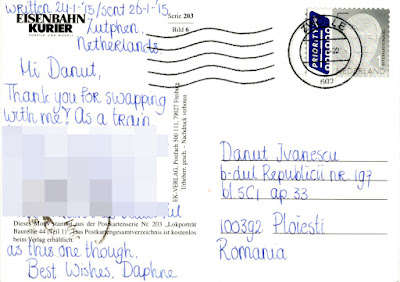 written 24-1-'15/sent 26-1-'15
EISENBAHN
KURIER
Serie 203
Bild 6
Zutphen,
Netherlands
Hi Danut,
Thank you for swapping
with me! As a train
Dieses Motiv stammt aus der Postkartenserie Nr. 203 „Lokporträt
Baureihe 44 (Teil 1)“. Das Postkartengesamtverzeichnis ist kostenlos
beim Verlag erhältlich.
as this one though.
Best Wishes, Daphne
EK-VERLAG, Postfach 500 111, 79027 Freiburg
Urheber. gesch. - Nachdruck verboten
PRIORITY
NEDERLAND
Danut Ivanescu
b-dul Republicii nr. 197
bl. 5C1 ap 33
100392 Ploiesti
Romania